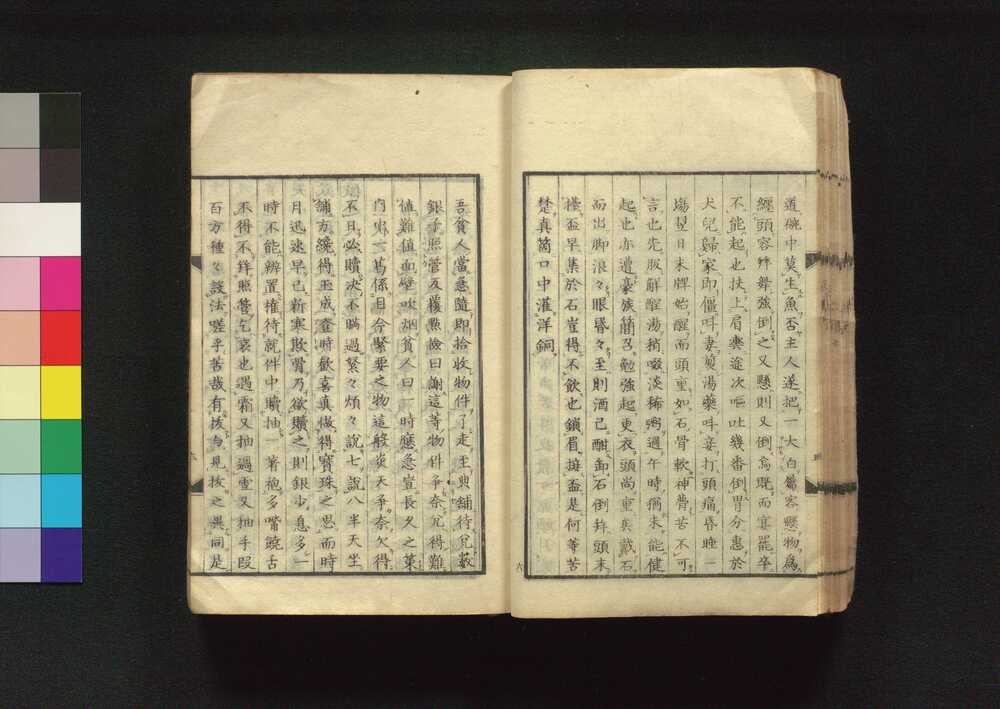 道碗中莫生魚否主人遂把一大白屬客懸物爲
纏頭容舞舞強倒之又懸則又倒爲既而宴罷卒
不能起也扶上肩輿途次嘔吐幾番倒胃分惠於
犬兒歸家即僵呌妻煎湯藥呌妾打頭痛昏睡一
塲翌日未牌始醒而頭重如石骨軟神昏苦不可
言也先服解醒湯稍啜淡稀粥過午時猶未能健
起也亦遭豪族簡召勉強起更衣頭尚重兵戴石
而出脚浪々眼昏々至則酒已酣卸石倒銕頭未
擡盃早集於石豈得不飲也鎖眉擁盃是何等苦
楚真箇口中灌洋銅
六
吾貧人當急隨即拾收物件了走至典舖待兌數
銀子照管反覆點撿曰謝這等物件爭奈兌得難
値難値面壁吹烟貧人曰一時應急豈長久之策
乃出一萬係目今緊要之物這般炎天爭奈欠得
不日必贖决不瞞過緊々煩々說七說八半天坐
舖方纔得玉成當時歡喜真做得寶珠之思而時
月迅速早已新寒欺骨乃欲贖之則銀少息多一
時不能辨置推待就件中贖抽一著袍多嘴饒舌
不得不鮮照管乞哀也遇霜又抽遇雪又抽手段
百方種々設法嗟乎苦哉有拔与見拔之異同是